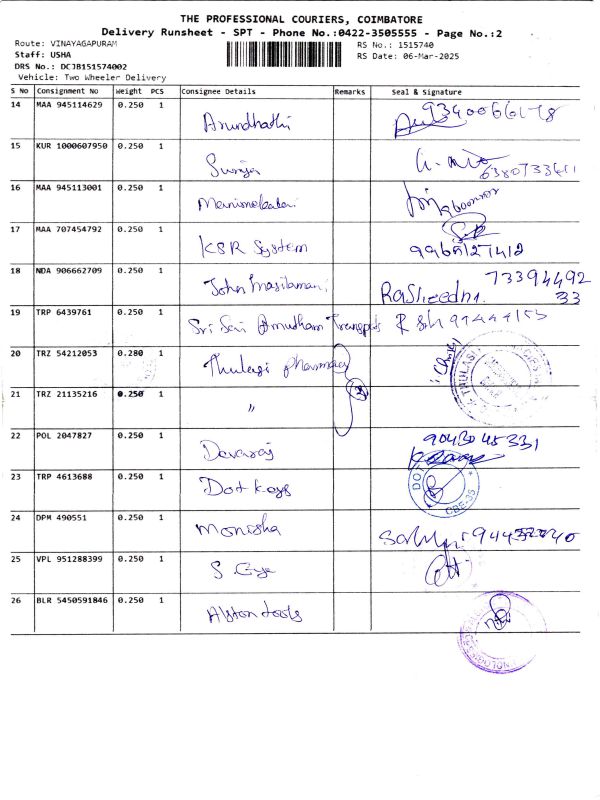 THE PROFESSIONAL COURIERS, COIMBATORE
Delivery Runsheet - SPT - Phone No.:0422-3505555 - Page No.:2
Route: VINAYAGAPURAM
RS No.: 1515740
Staff: USHA
RS Date: 06-Mar-2025
DRS No.: DCJB151574002
Vehicle: Two Wheeler Delivery
S No Consignment No Weight PCS Consignee Details Remarks Seal & Signature
14 MAA 945114629 0.250 1 Arundhathi
15 KUR 1000607950 0.250 1
16 MAA 945113001 0.250 1 Manimekalai
17 MAA 707454792 0.250 1 KSR System 9965127412
18 NDA 906662709 0.250 1 John Masilamani Rasheedha. 73394492
33
19 TRP 6439761 0.250 1 Sri Sai Amudham Transports
20 TRZ 54212053 0.280 1 Thulasi pharmacy
21 TRZ 21135216 0.250 1 "
22 POL 2047827 0.250 1 Devaraj 9043045331
23 TRP 4613688 0.250 1 Dot Keys DOT CBE-35
24 DPM 490551 0.250 1 Monisha
25 VPL 951288399 0.250 1
26 BLR 5450591846 0.250 1 Alston tools